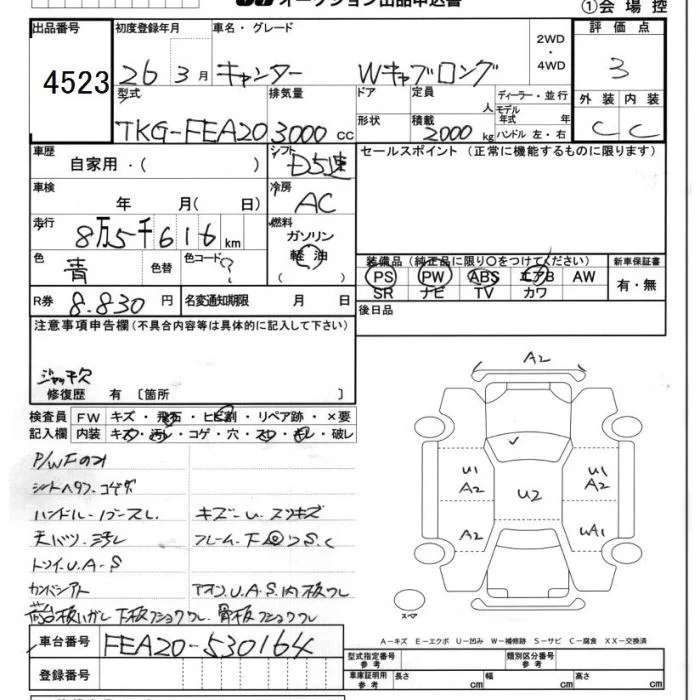 オークション出品申込書
①会場控
出品番号 4523
初度登録年月 26 3月
車名・グレード キャンター Wキャブロング
2WD・4WD
評価点 3
型式 TKG-FEA20
排気量 3000 cc
ドア 形状
定員 人
積載 2000 kg
ディーラー・並行
モデル年式 年
ハンドル 左・右
外装 内装
C C
車歴 自家用・( )
シフト D5速
セールスポイント (正常に機能するものに限ります)
車検 年 月( 日)
冷房 AC
走行 8万5千616 km
燃料 ガソリン 軽油 ( )
色 青 色替 色コード ?
装備品 (純正品に限り○をつけてください)
新車保証書
PS PW ABS エアB AW
SR ナビ TV カワ
有・無
R券 8.830 円
名変通知期限 月 日
後日品
注意事項申告欄 (不具合内容等は具体的に記入して下さい)
ジャッキ欠
修復歴 有 〔箇所 〕
A2
検査員記入欄
FW キズ・飛石・ヒビ割・リペア跡・×要
内装 キズ・汚レ・コゲ・穴・スレ・破レ
P/WFのみ
ハンドル
キズ
U1 A2
U2
U1 A2
天バリ・汚レ
フレーム・下
S.C
A2
WA1
U.A.S
スペア
A-キズ E-エクボ U-凹み W-補修跡 S-サビ C-腐食 XX-交換済
車台番号 FEA20-530164
型式指定番号 参考
類別区分番号 参考
登録番号
車庫証明用 参考
長さ cm 幅 cm 高さ cm